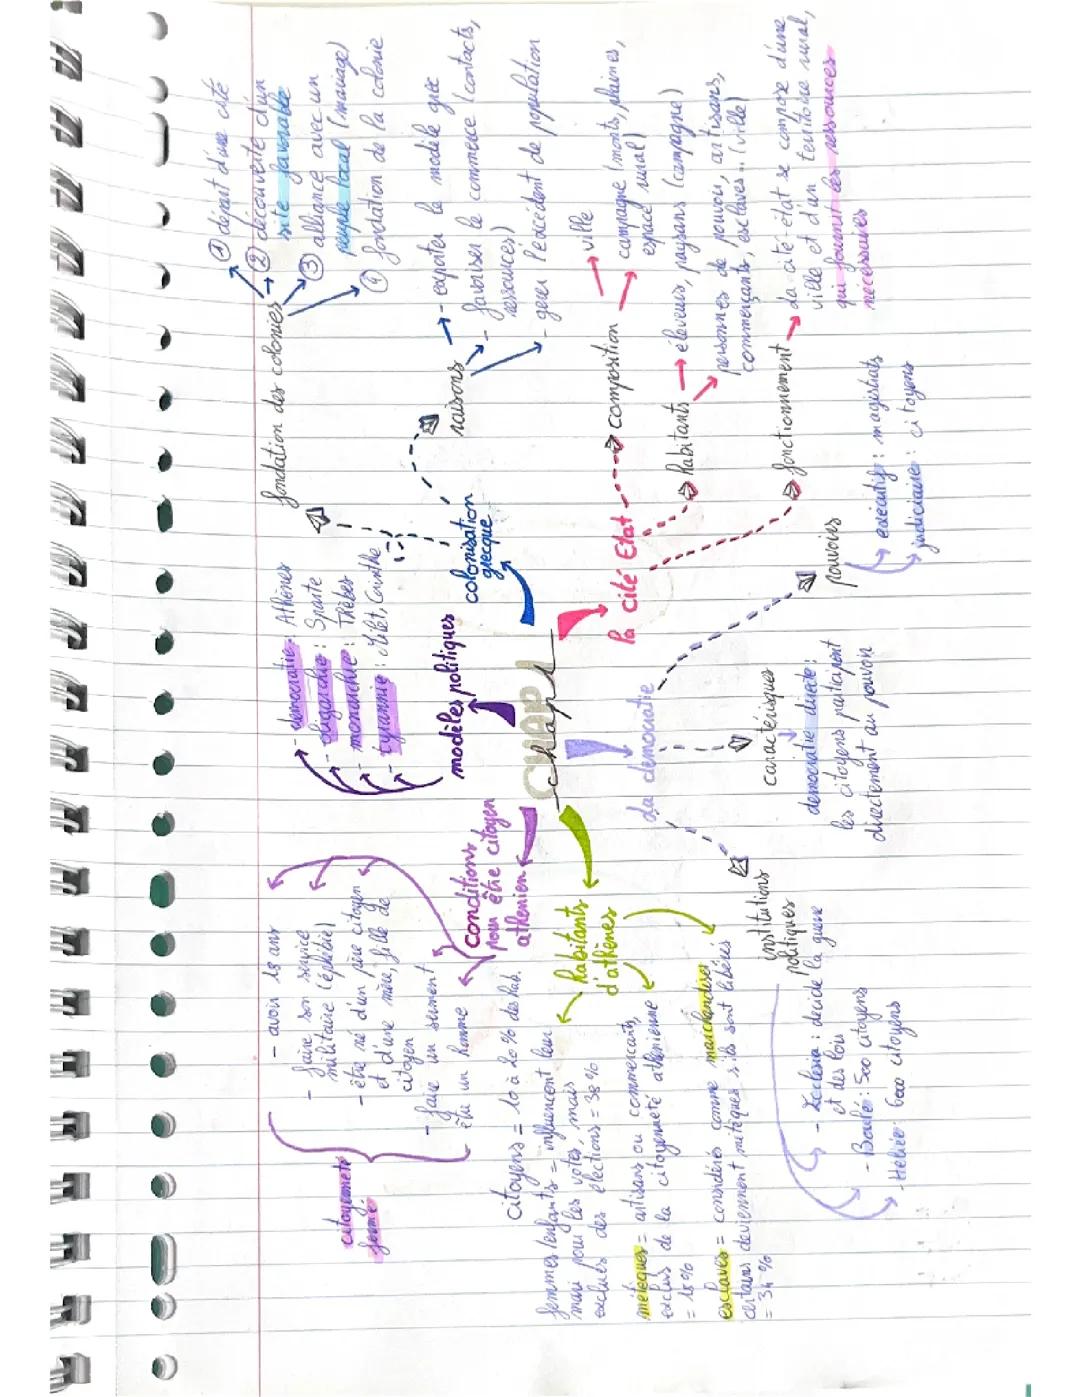 CHAP 1
chap 1
modèles politiques
- démocratie : Athènes
- oligarchie : Sparte
- monarchie : Thèbes
- tyrannie : Milet, Corinthe
colonisation
grecque
fondation des colonies
① départ d'une cité
② découverte d'un
site favorable
③ alliance avec un
peuple local (mariage)
④ fondation de la colonie
raisons
- exporter le modèle grec
- favoriser le commerce (contacts,
ressources)
- gérer l'excédent de population
la cité Etat
composition
ville
campagne (monts, plaines,
espace rural)
habitants
éleveurs, paysans (campagne)
personnes de pouvoir, artisans,
commerçants, esclaves... (ville)
fonctionnement
La cité-état se compose d'une
ville et d'un territoire rural,
qui fournit les ressources
nécessaires
La démocratie
pouvoirs
exécutif : magistrats
judiciaire : citoyens
caractérisques
démocratie directe :
les citoyens participent
directement au pouvoir
institutions
politiques
- Ecclesia : décide la guerre
et des lois
- Boulé : 500 citoyens
- Héliée : 6000 citoyens
habitants
d'athènes
citoyens = 10 à 20 % des hab.
femmes/enfants = influencent leur
mari pour les votes, mais
exclues des élections = 38 %
métèques = artisans ou commercants,
exclus de la citoyenneté athénienne
= 18 %
esclaves = considérés comme marchandises
certains deviennent métèques s'ils sont libérés
= 34 %
conditions
pour être citoyen
athenien
- avoir 18 ans
- faire son service
militaire (éphébie)
- être né d'un père citoyen
et d'une mère, fille de
citoyen
- faire un serment
- être un homme
citoyenneté
fermé